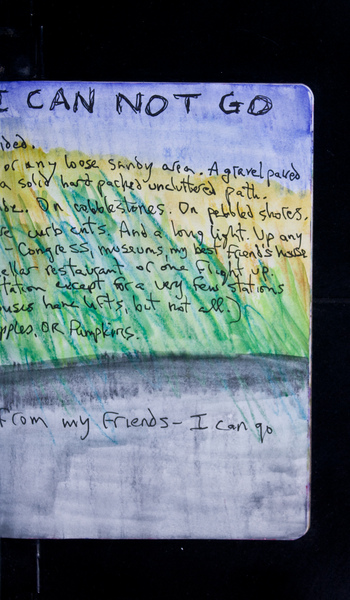 I CAN NOT GO
ided.
or any loose sandy area. A gravel paved
a solid hard packed uncluttered path.
On cobblestones. On pebbled shores.
curb cuts. And a long light. Up any
- Congress, museums, my best friend's house
ellar restaurant or one flight up.
tation except for a very few stations
ouses have lifts, but not all.)
pples. OR Pumpkins.
from my Friends - I can go